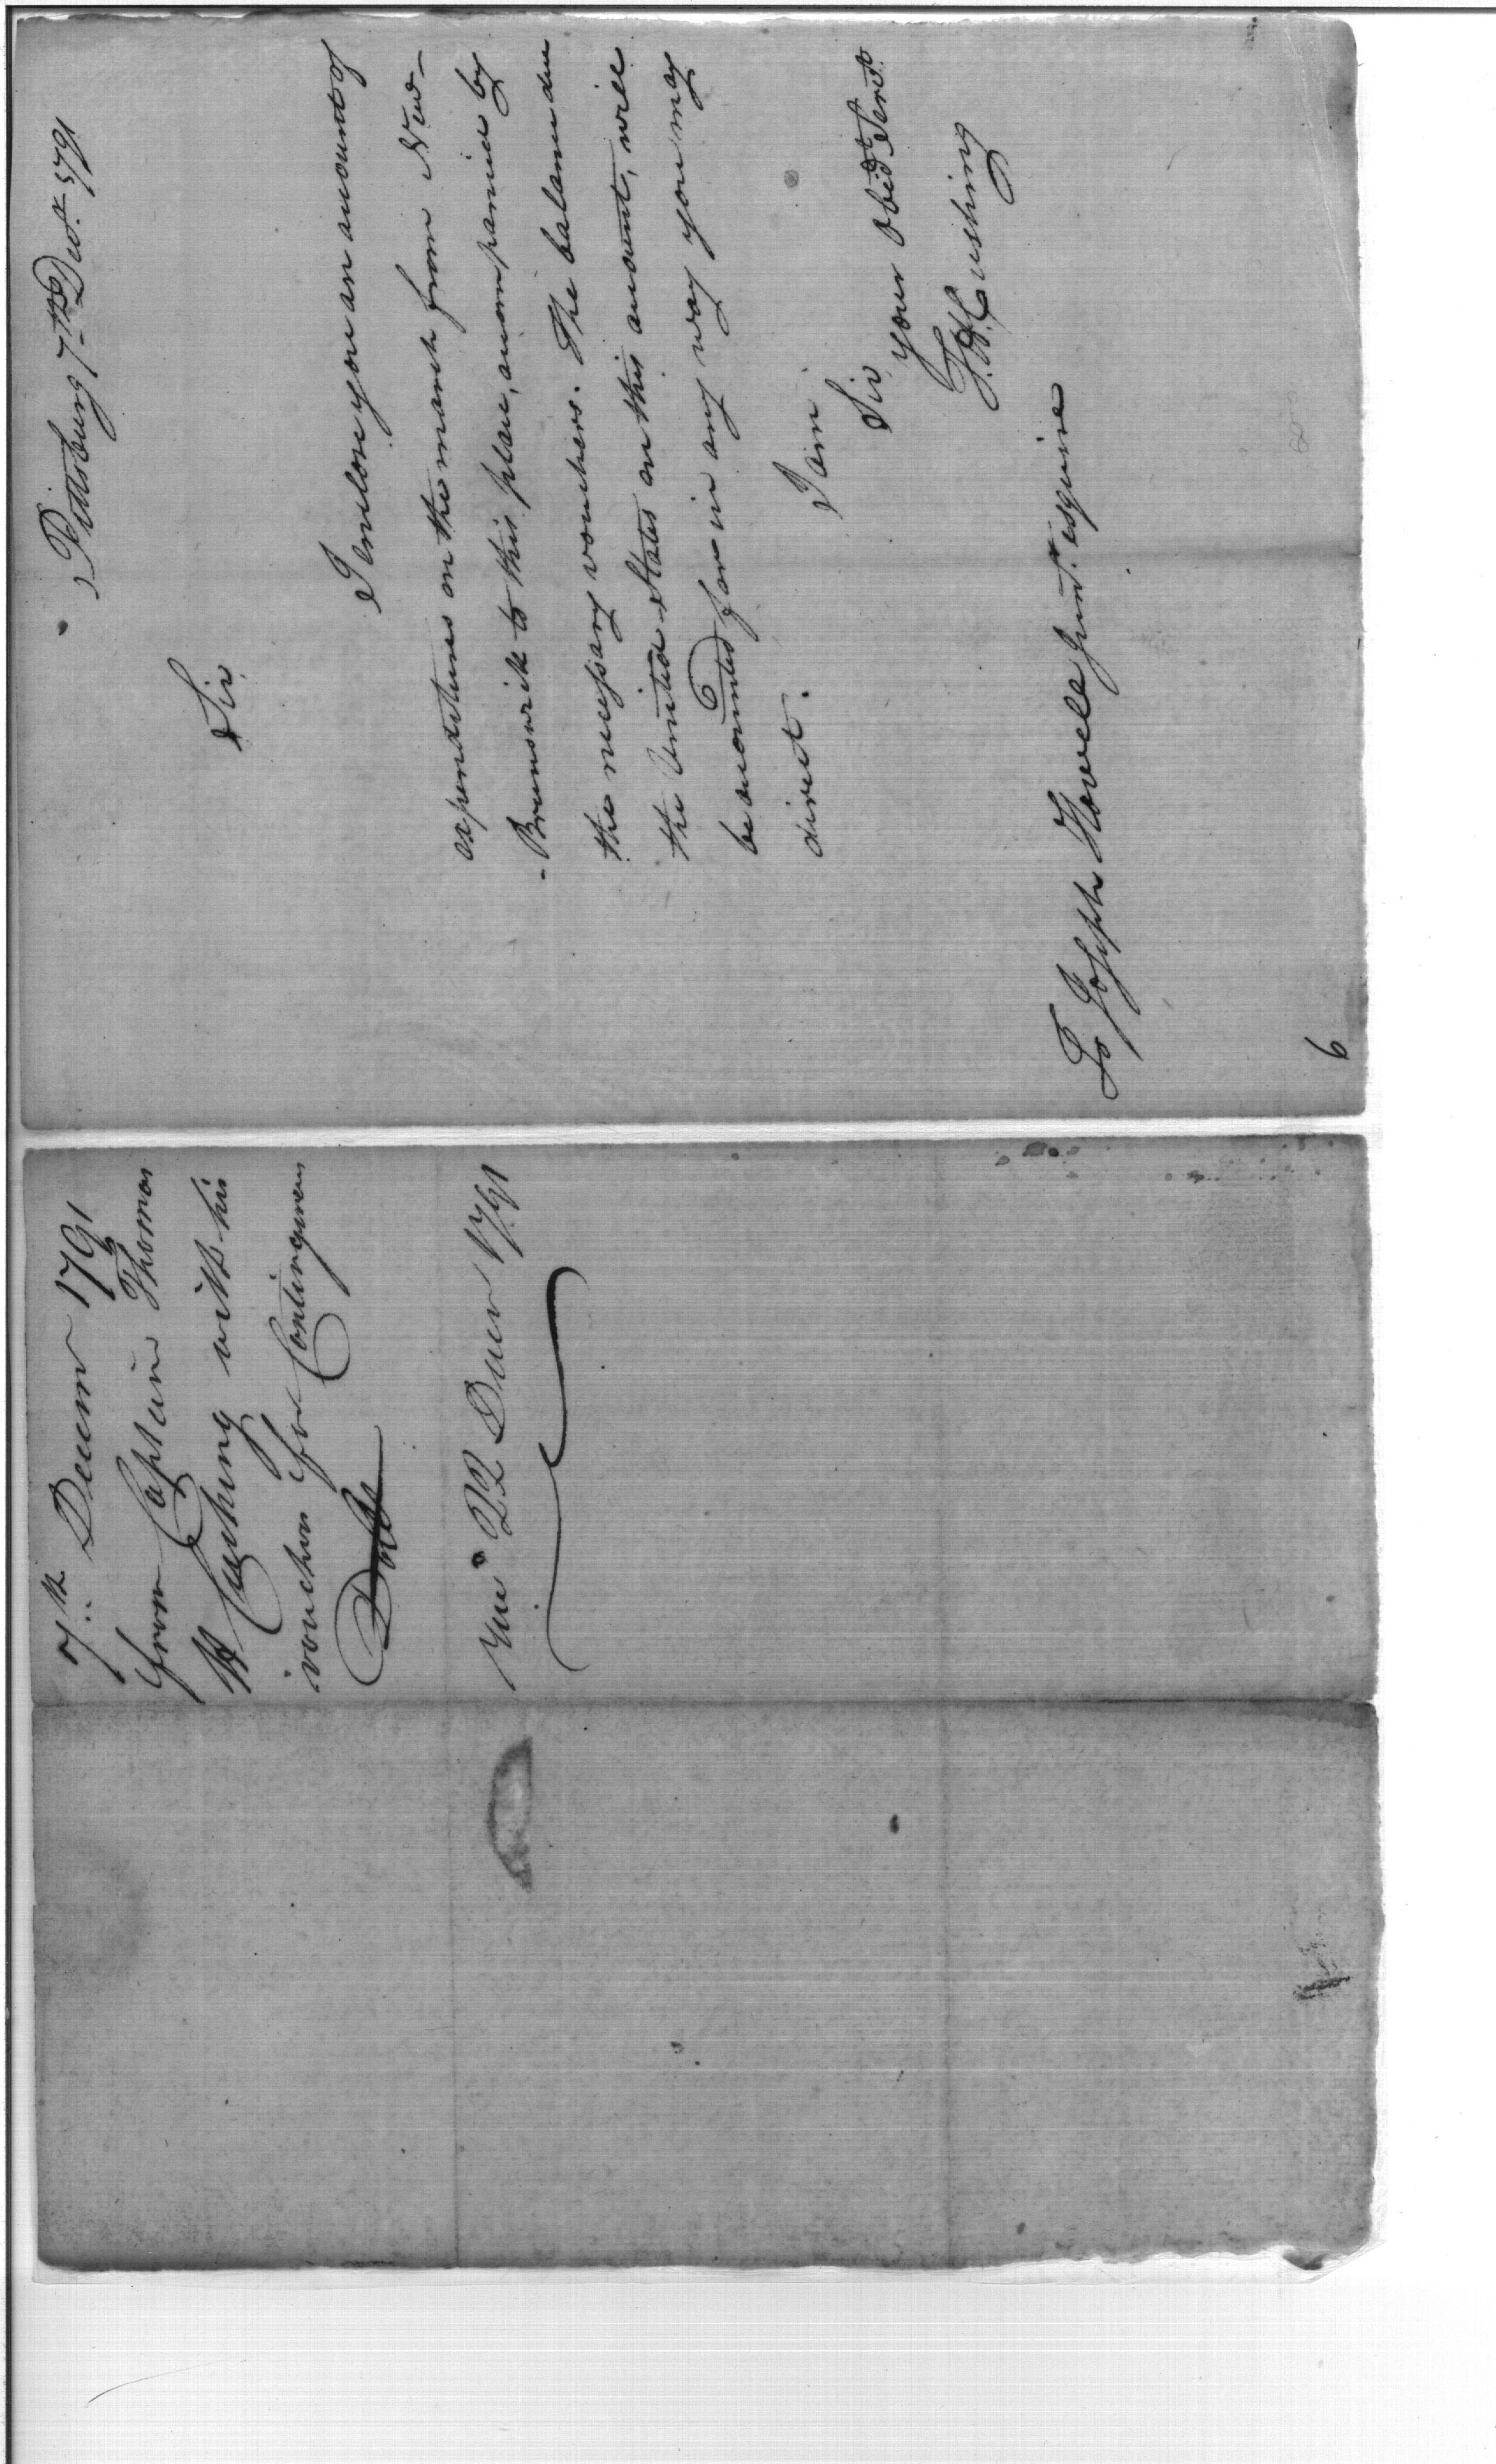 Pittsburg 7th Decr. 1791
Sir
I enclose you an account of
expenditures on the march from New-
-Brunswick to this place, accompanied by
the necessary vouchers. The balance due
the United States on this account, will
be accounted for in any way you may
direct.
I am
Sir
your obedt Servt
T.H. Cushing
To Joseph Howell Junr. esquire
6
7th Decemr 1791
from Captain Thomas
H Cushing with his
vouchers for Contingencies
22 Decer 1791